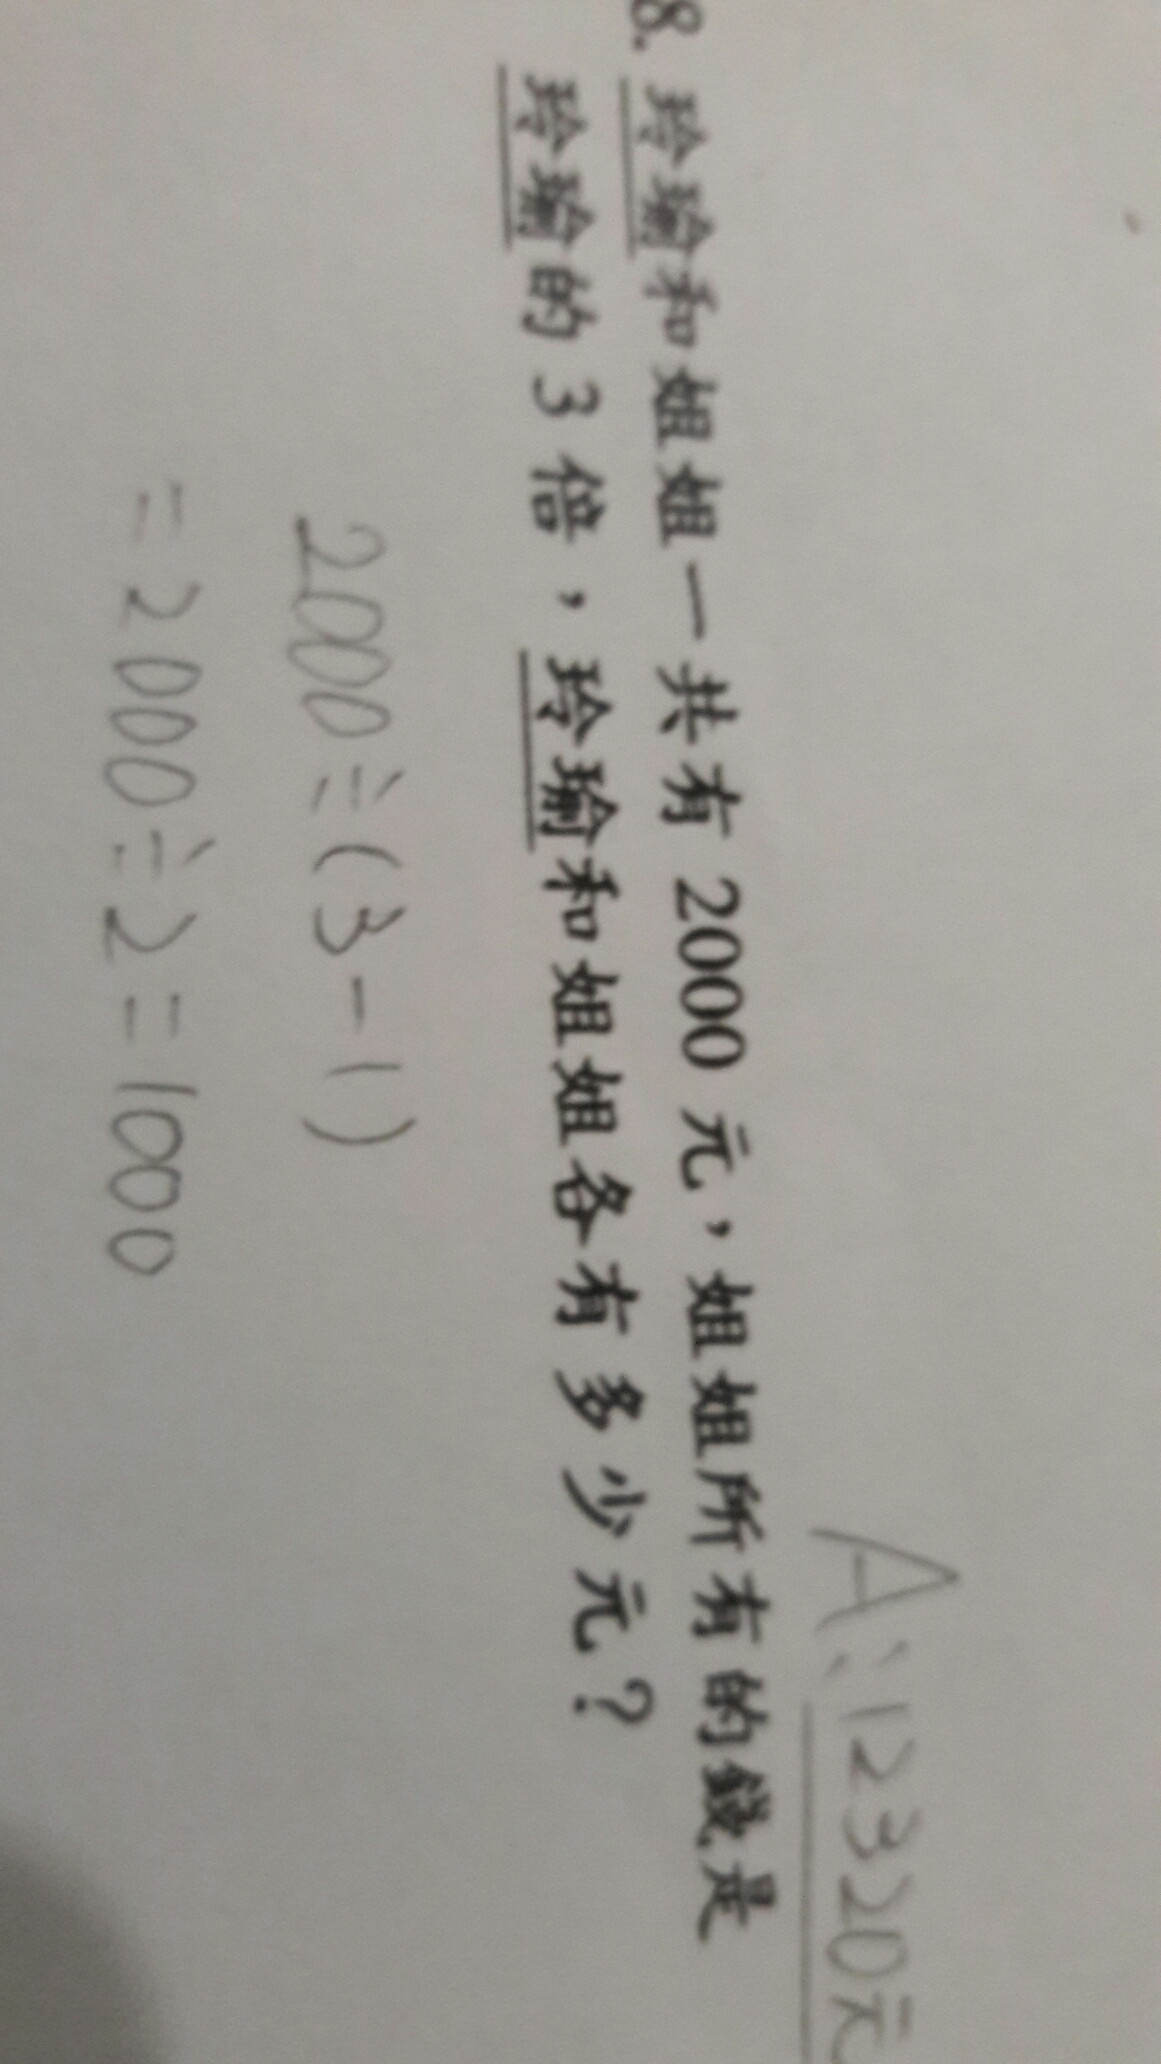 A:12320元
8. 玲瑜和姐姐一共有 2000 元,姐姐所有的錢是
玲瑜的 3 倍,玲瑜和姐姐各有多少元?
2000÷(3-1)
=2000÷2=1000